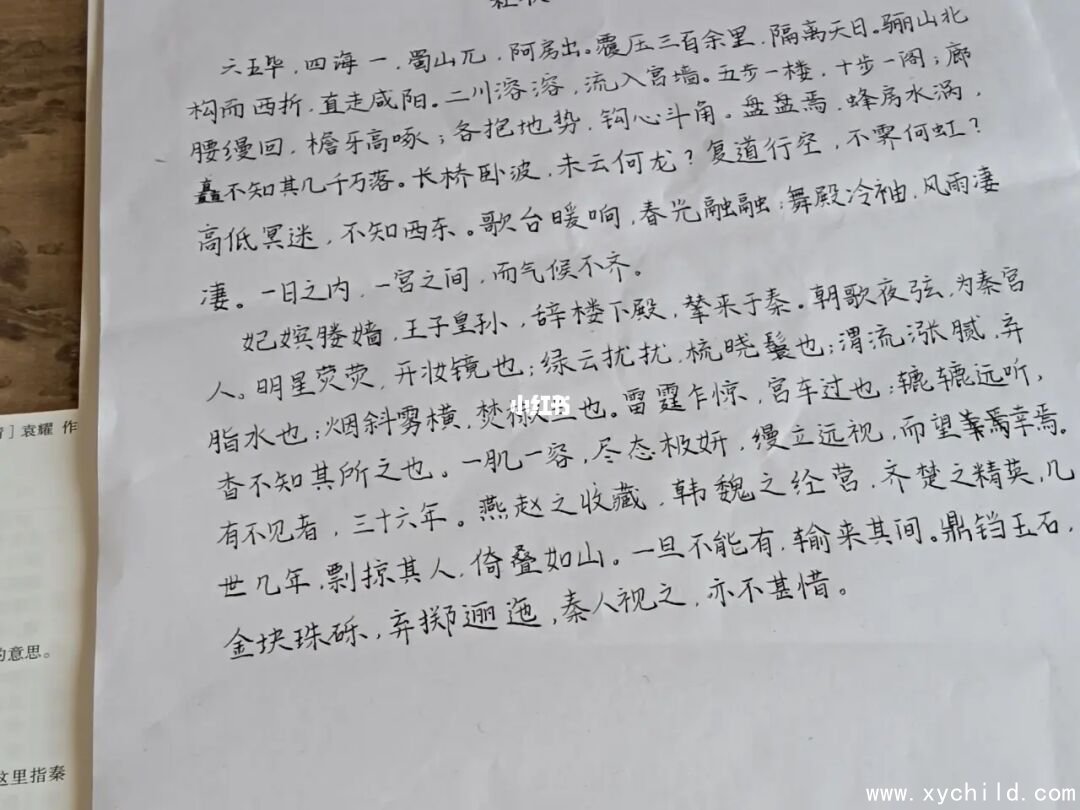 六王毕，四海一，蜀山兀，阿房出。覆压三百余里，隔离天日。骊山北
构而西折，直走咸阳。二川溶溶，流入宫墙。五步一楼，十步一阁；廊
腰缦回，檐牙高啄；各抱地势，钩心斗角。盘盘焉，蜂房水涡，
矗不知其几千万落。长桥卧波，未云何龙？复道行空，不霁何虹？
高低冥迷，不知西东。歌台暖响，春光融融；舞殿冷袖，风雨凄
凄。一日之内，一宫之间，而气候不齐。
妃嫔媵嫱，王子皇孙，辞楼下殿，辇来于秦。朝歌夜弦，为秦宫
人。明星荧荧，开妆镜也；绿云扰扰，梳晓鬟也；渭流涨腻，弃
脂水也；烟斜雾横，焚椒兰也。雷霆乍惊，宫车过也；辘辘远听，
杳不知其所之也。一肌一容，尽态极妍，缦立远视，而望幸焉幸焉。
有不见者，三十六年。燕赵之收藏，韩魏之经营，齐楚之精英，几
世几年，剽掠其人，倚叠如山。一旦不能有，输来其间。鼎铛玉石，
金块珠砾，弃掷逦迤，秦人视之，亦不甚惜。
小红书
］袁耀 作
的意思。
这里指秦
www.xychild.com